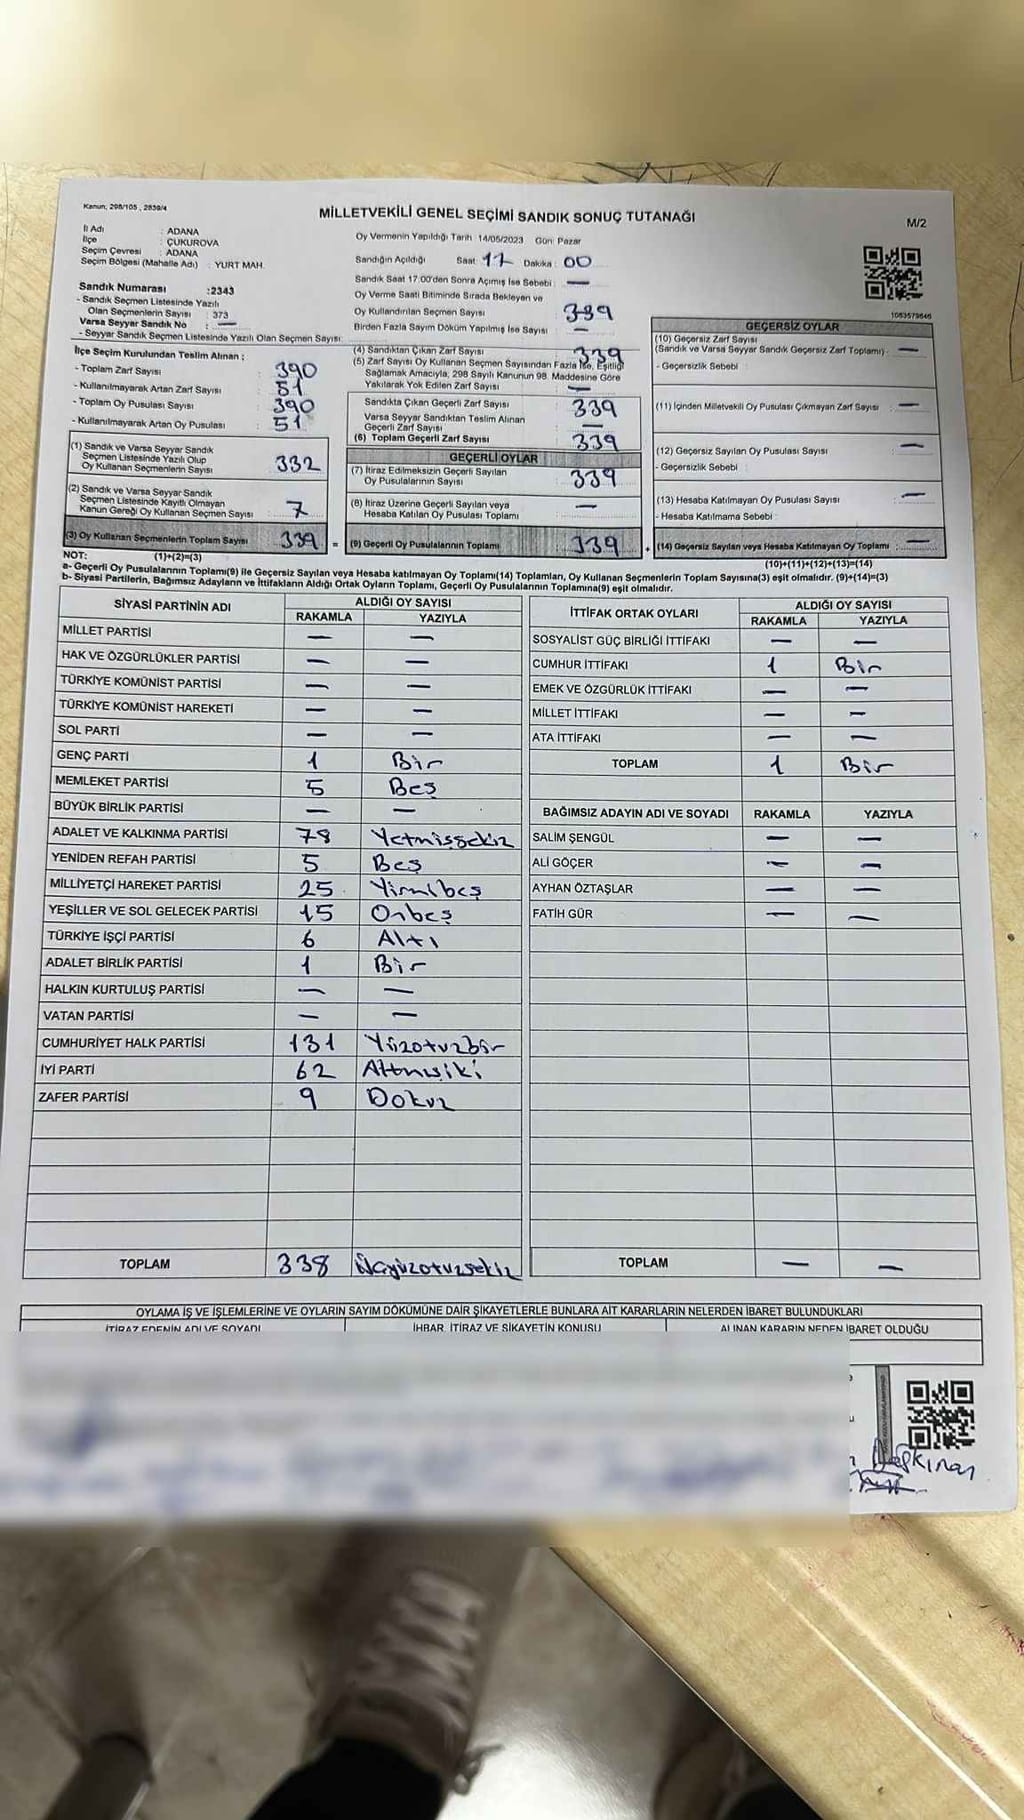 Kanun; 298/105 , 2839/4
MİLLETVEKİLİ GENEL SEÇİMİ SANDIK SONUÇ TUTANAĞI
M/2
İl Adı : ADANA
İlçe : ÇUKUROVA
Seçim Çevresi : ADANA
Seçim Bölgesi (Mahalle Adı) : YURT MAH.
Sandık Numarası :2343
- Sandık Seçmen Listesinde Yazılı
Olan Seçmenlerin Sayısı : 373
Varsa Seyyar Sandık No : —
- Seyyar Sandık Seçmen Listesinde Yazılı Olan Seçmen Sayısı:
Oy Vermenin Yapıldığı Tarih 14/05/2023 Gün: Pazar
Sandığın Açıldığı Saat 17 Dakika : 00
Sandık Saat 17.00'den Sonra Açımış İse Sebebi : —
Oy Verme Saati Bitiminde Sırada Bekleyen ve
Oy Kullandırılan Seçmen Sayısı 339
Birden Fazla Sayım Döküm Yapılmış İse Sayısı —
1063579846
İlçe Seçim Kurulundan Teslim Alınan ;
- Toplam Zarf Sayısı : 390
- Kullanılmayarak Artan Zarf Sayısı : 51
- Toplam Oy Pusulası Sayısı : 390
- Kullanılmayarak Artan Oy Pusulası : 51
(1) Sandık ve Varsa Seyyar Sandık
Seçmen Listesinde Yazılı Olup
Oy Kullanan Seçmenlerin Sayısı : 332
(2) Sandık ve Varsa Seyyar Sandık
Seçmen Listesinde Kayıtlı Olmayan
Kanun Gereği Oy Kullanan Seçmen Sayısı : 7
(3) Oy Kullanan Seçmenlerin Toplam Sayısı 339 =
(4) Sandıktan Çıkan Zarf Sayısı 339
(5) Zarf Sayısı Oy Kullanan Seçmen Sayısından Fazla İse, Eşitliği
Sağlamak Amacıyla, 298 Sayılı Kanunun 98. Maddesine Göre
Yakılarak Yok Edilen Zarf Sayısı —
Sandıkta Çıkan Geçerli Zarf Sayısı 339
Varsa Seyyar Sandıktan Teslim Alınan
Geçerli Zarf Sayısı —
(6) Toplam Geçerli Zarf Sayısı 339
GEÇERLİ OYLAR
(7) İtiraz Edilmeksizin Geçerli Sayılan
Oy Pusulalarının Sayısı : 339
(8) İtiraz Üzerine Geçerli Sayılan veya
Hesaba Katılan Oy Pusulası Toplamı : —
(9) Geçerli Oy Pusulalarının Toplamı 339 +
GEÇERSİZ OYLAR
(10) Geçersiz Zarf Sayısı
(Sandık ve Varsa Seyyar Sandık Geçersiz Zarf Toplamı) : —
- Geçersizlik Sebebi :
(11) İçinden Milletvekili Oy Pusulası Çıkmayan Zarf Sayısı : —
(12) Geçersiz Sayılan Oy Pusulası Sayısı : —
- Geçersizlik Sebebi :
(13) Hesaba Katılmayan Oy Pusulası Sayısı : —
- Hesaba Katılmama Sebebi :
(14) Geçersiz Sayılan veya Hesaba Katılmayan Oy Toplamı : —
NOT: (1)+(2)=(3) (10)+(11)+(12)+(13)=(14)
a- Geçerli Oy Pusulalarının Toplamı(9) ile Geçersiz Sayılan veya Hesaba katılmayan Oy Toplamı(14) Toplamları, Oy Kullanan Seçmenlerin Toplam Sayısına(3) eşit olmalıdır. (9)+(14)=(3)
b- Siyasi Partilerin, Bağımsız Adayların ve İttifakların Aldığı Ortak Oyların Toplamı, Geçerli Oy Pusulalarının Toplamına(9) eşit olmalıdır.
SİYASİ PARTİNİN ADI ALDIĞI OY SAYISI
RAKAMLA YAZIYLA
MİLLET PARTİSİ — —
HAK VE ÖZGÜRLÜKLER PARTİSİ — —
TÜRKİYE KOMÜNİST PARTİSİ — —
TÜRKİYE KOMÜNİST HAREKETİ — —
SOL PARTİ — —
GENÇ PARTİ 1 Bir
MEMLEKET PARTİSİ 5 Beş
BÜYÜK BİRLİK PARTİSİ — —
ADALET VE KALKINMA PARTİSİ 78 Yetmişsekiz
YENİDEN REFAH PARTİSİ 5 Beş
MİLLİYETÇİ HAREKET PARTİSİ 25 Yirmibeş
YEŞİLLER VE SOL GELECEK PARTİSİ 15 Onbeş
TÜRKİYE İŞÇİ PARTİSİ 6 Altı
ADALET BİRLİK PARTİSİ 1 Bir
HALKIN KURTULUŞ PARTİSİ — —
VATAN PARTİSİ — —
CUMHURİYET HALK PARTİSİ 131 Yüzotuzbir
İYİ PARTİ 62 Altmışiki
ZAFER PARTİSİ 9 Dokuz
TOPLAM 338 Üçyüzotuzsekiz
İTTİFAK ORTAK OYLARI ALDIĞI OY SAYISI
RAKAMLA YAZIYLA
SOSYALİST GÜÇ BİRLİĞİ İTTİFAKI — —
CUMHUR İTTİFAKI 1 Bir
EMEK VE ÖZGÜRLÜK İTTİFAKI — —
MİLLET İTTİFAKI — —
ATA İTTİFAKI — —
TOPLAM 1 Bir
BAĞIMSIZ ADAYIN ADI VE SOYADI RAKAMLA YAZIYLA
SALİM ŞENGÜL — —
ALİ GÖÇER — —
AYHAN ÖZTAŞLAR — —
FATİH GÜR — —
TOPLAM — —
OYLAMA İŞ VE İŞLEMLERİNE VE OYLARIN SAYIM DÖKÜMÜNE DAİR ŞİKAYETLERLE BUNLARA AİT KARARLARIN NELERDEN İBARET BULUNDUKLARI
İTİRAZ EDENİN ADI VE SOYADI İHBAR, İTİRAZ VE ŞİKAYETİN KONUSU ALINAN KARARIN NEDEN İBARET OLDUĞU